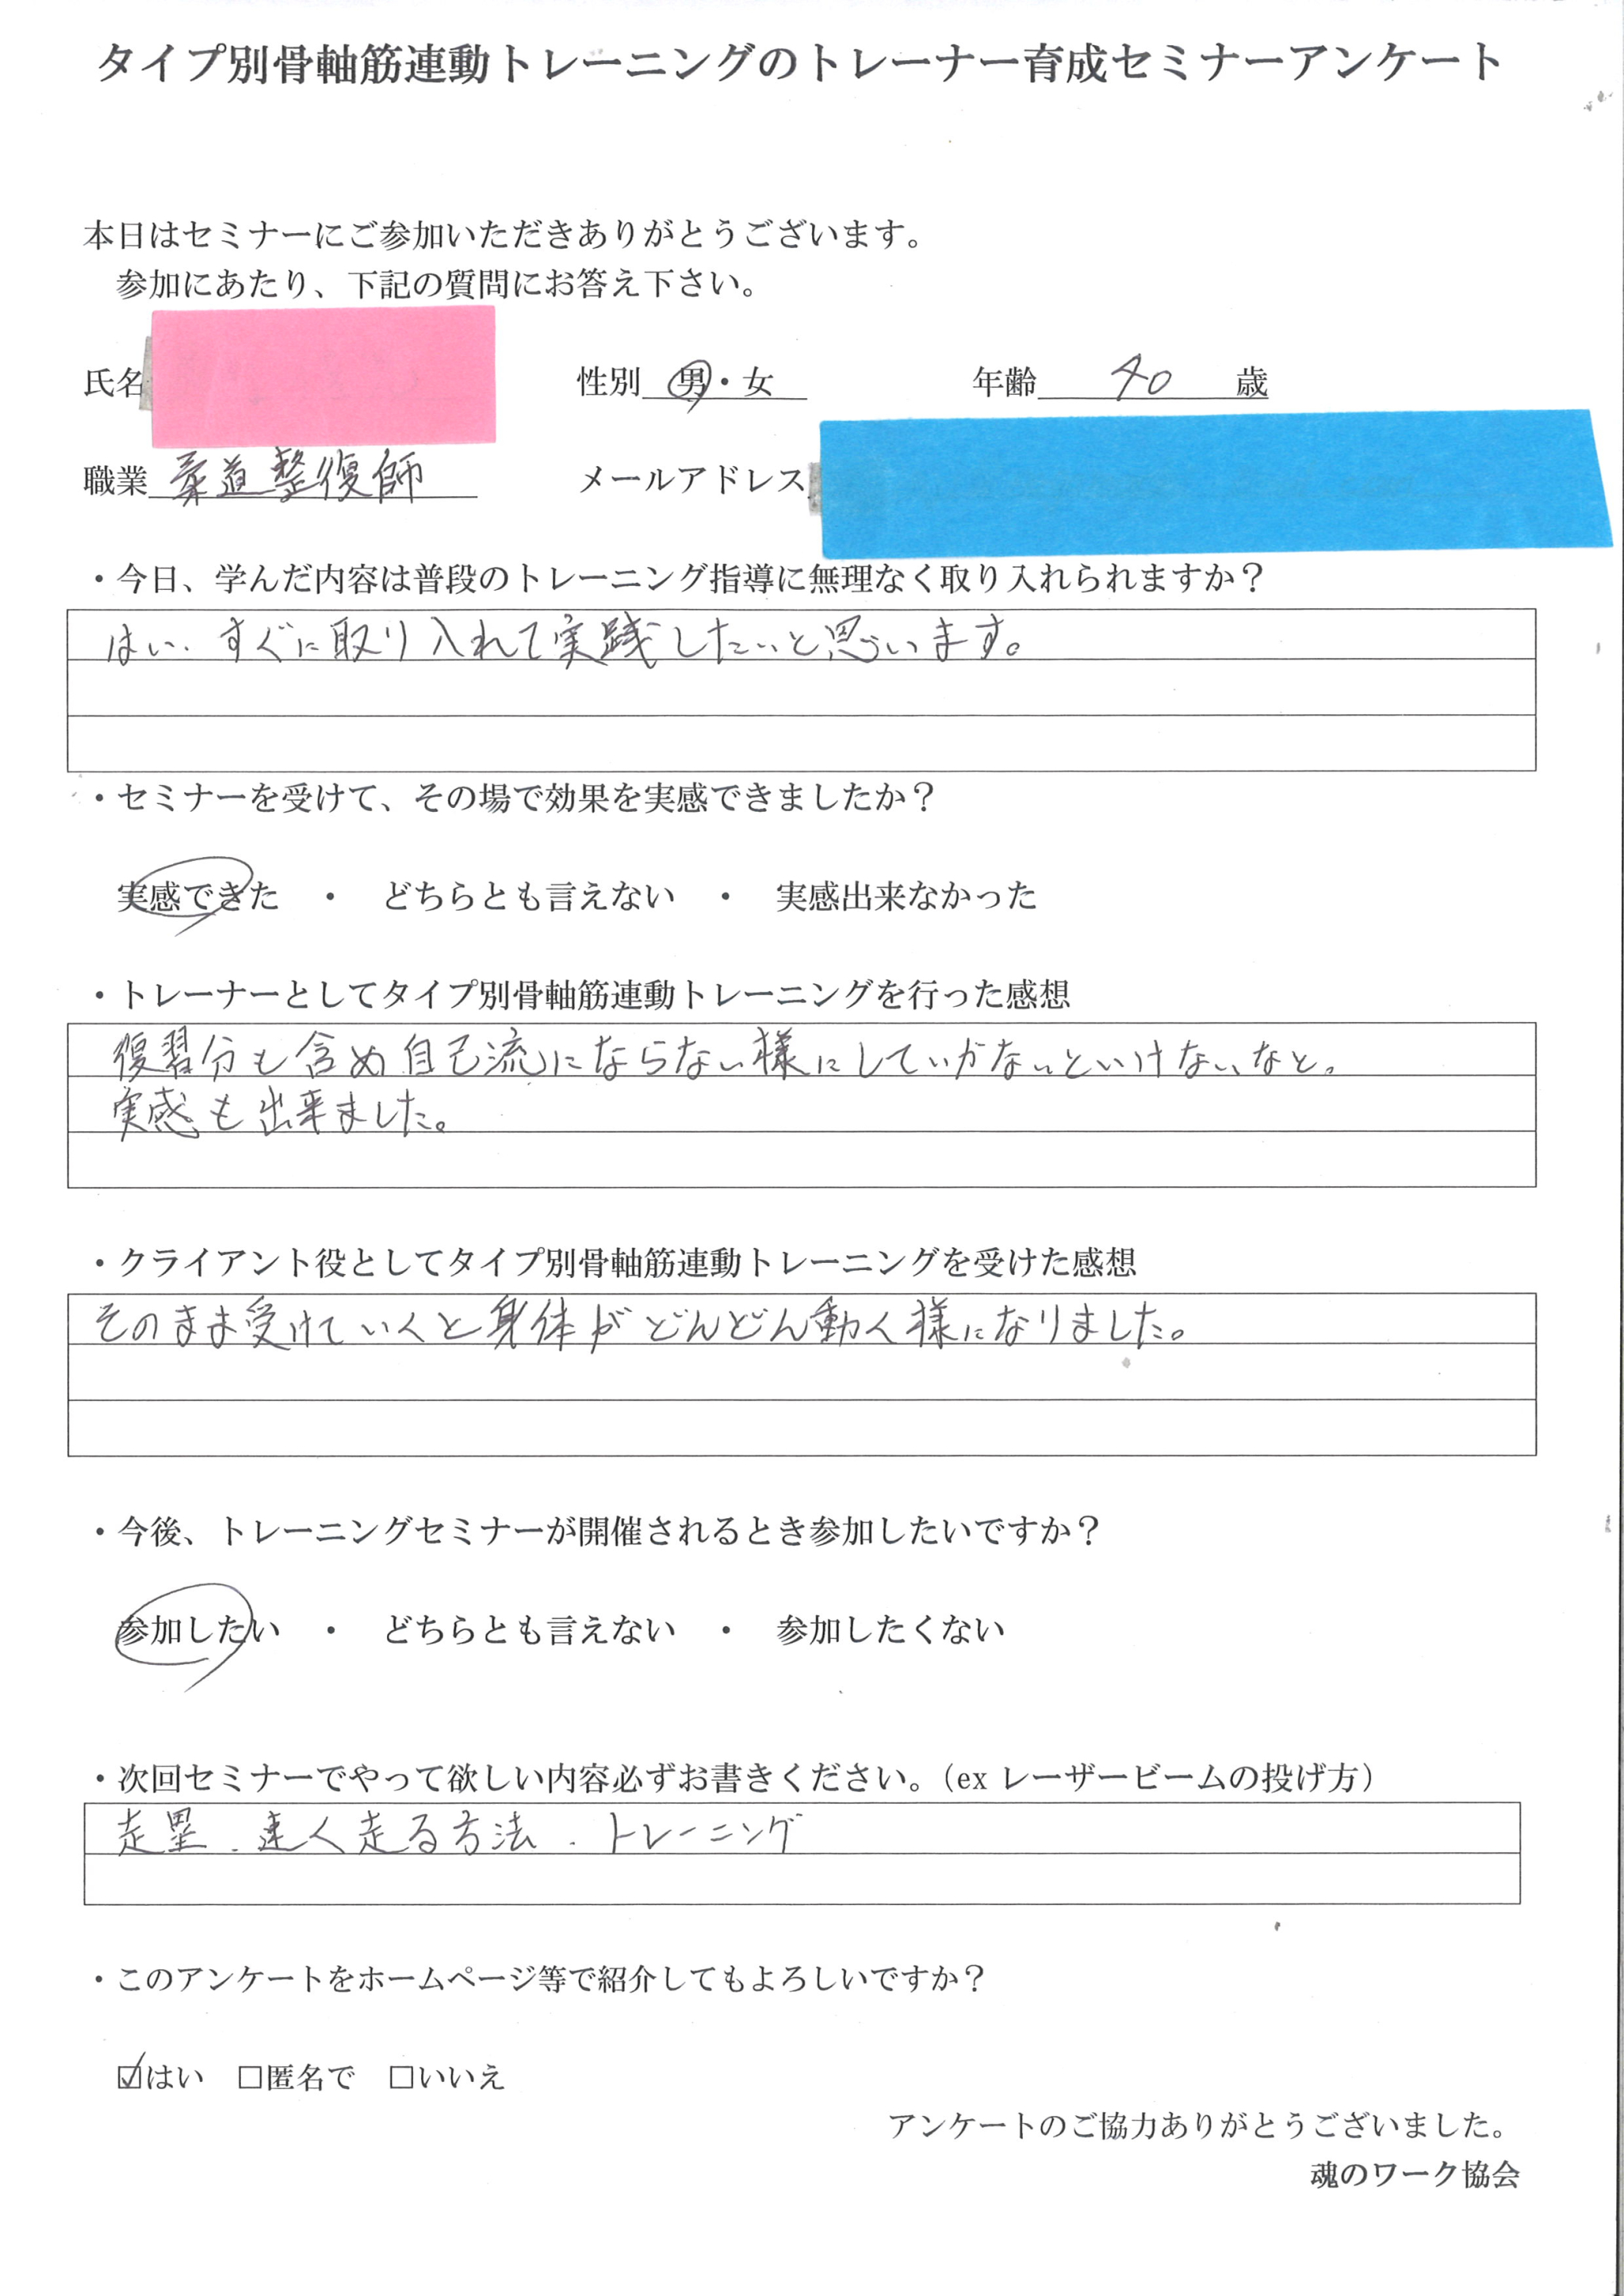 タイプ別骨軸筋連動トレーニングのトレーナー育成セミナーアンケート
本日はセミナーにご参加いただきありがとうございます。
参加にあたり、下記の質問にお答え下さい。
氏名 性別 男・女 年齢 40 歳
職業 柔道整復師 メールアドレス
・今日、学んだ内容は普段のトレーニング指導に無理なく取り入れられますか？
はい、すぐに取り入れて実践したいと思います。
・セミナーを受けて、その場で効果を実感できましたか？
実感できた ・ どちらとも言えない ・ 実感出来なかった
・トレーナーとしてタイプ別骨軸筋連動トレーニングを行った感想
復習分も含め自己流にならない様にしていかないといけないなと。
実感も出来ました。
・クライアント役としてタイプ別骨軸筋連動トレーニングを受けた感想
そのまま受けていくと身体がどんどん動く様になりました。
・今後、トレーニングセミナーが開催されるとき参加したいですか？
参加したい ・ どちらとも言えない ・ 参加したくない
・次回セミナーでやって欲しい内容必ずお書きください。（ex レーザービームの投げ方）
走塁、速く走る方法、トレーニング
・このアンケートをホームページ等で紹介してもよろしいですか？
☑はい □匿名で □いいえ
アンケートのご協力ありがとうございました。
魂のワーク協会